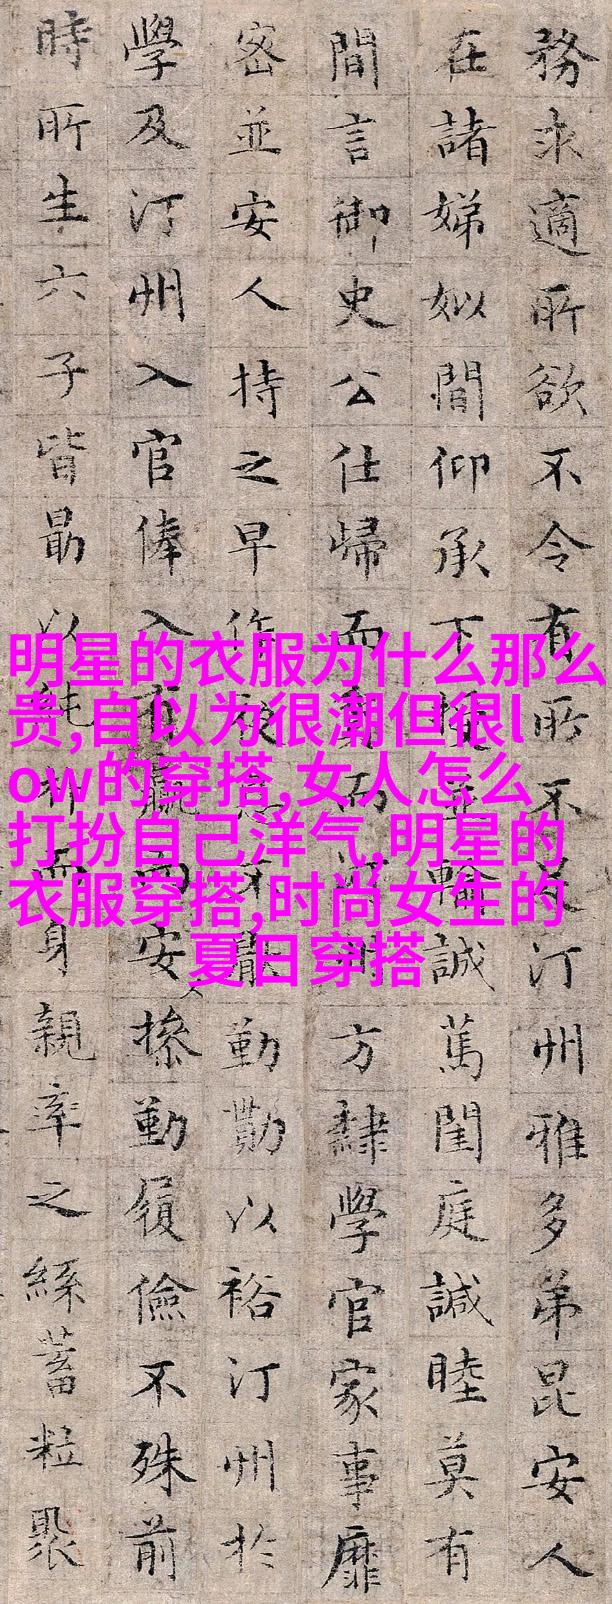 務求適所欲不令有所不汀州雅多弟昆安人
在諸娣姒間仰承下輸誠萬閨庭諴睦莫有
間言御史公仕歸而方隸學官家事靡
密並安人持之早作勤勩以裕汀州於
學及汀州入官俸入不贏而安操勤履儉不殊前
時所生六子皆勗以純而身親率之絲蓄粒聚
明星的衣服为什么那么
贵,自以为很潮但很l
ow的穿搭,女人怎么
打扮自己洋气,明星的
衣服穿搭,时尚女生的
夏日穿搭